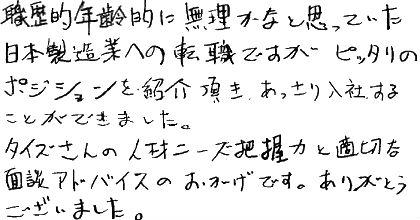 職歴的年齢的に無理かなと思っていた
日本製造業への転職ですが ピッタリの
ポジションを紹介頂き、あっさり入社する
ことができました。
タイズさんの人材ニーズ把握力と適切な
面談アドバイスのおかげです。ありがとう
ございました。